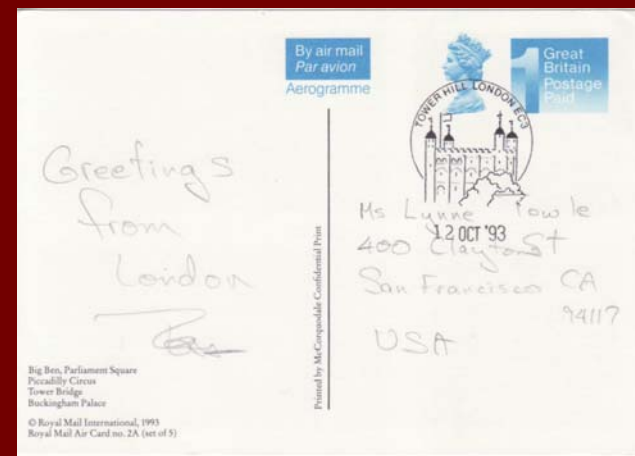 By air mail
Par avion
Aerogramme
Great
Britain
Postage
Paid
1
TOWER HILL LONDON EC3
12 OCT '93
Greetings
from
London
Ms Lynne Towle
400 Clayton St
San Francisco CA
94117
USA
Printed by McCorquodale Confidential Print
Big Ben, Parliament Square
Piccadilly Circus
Tower Bridge
Buckingham Palace
© Royal Mail International, 1993
Royal Mail Air Card no. 2A (set of 5)